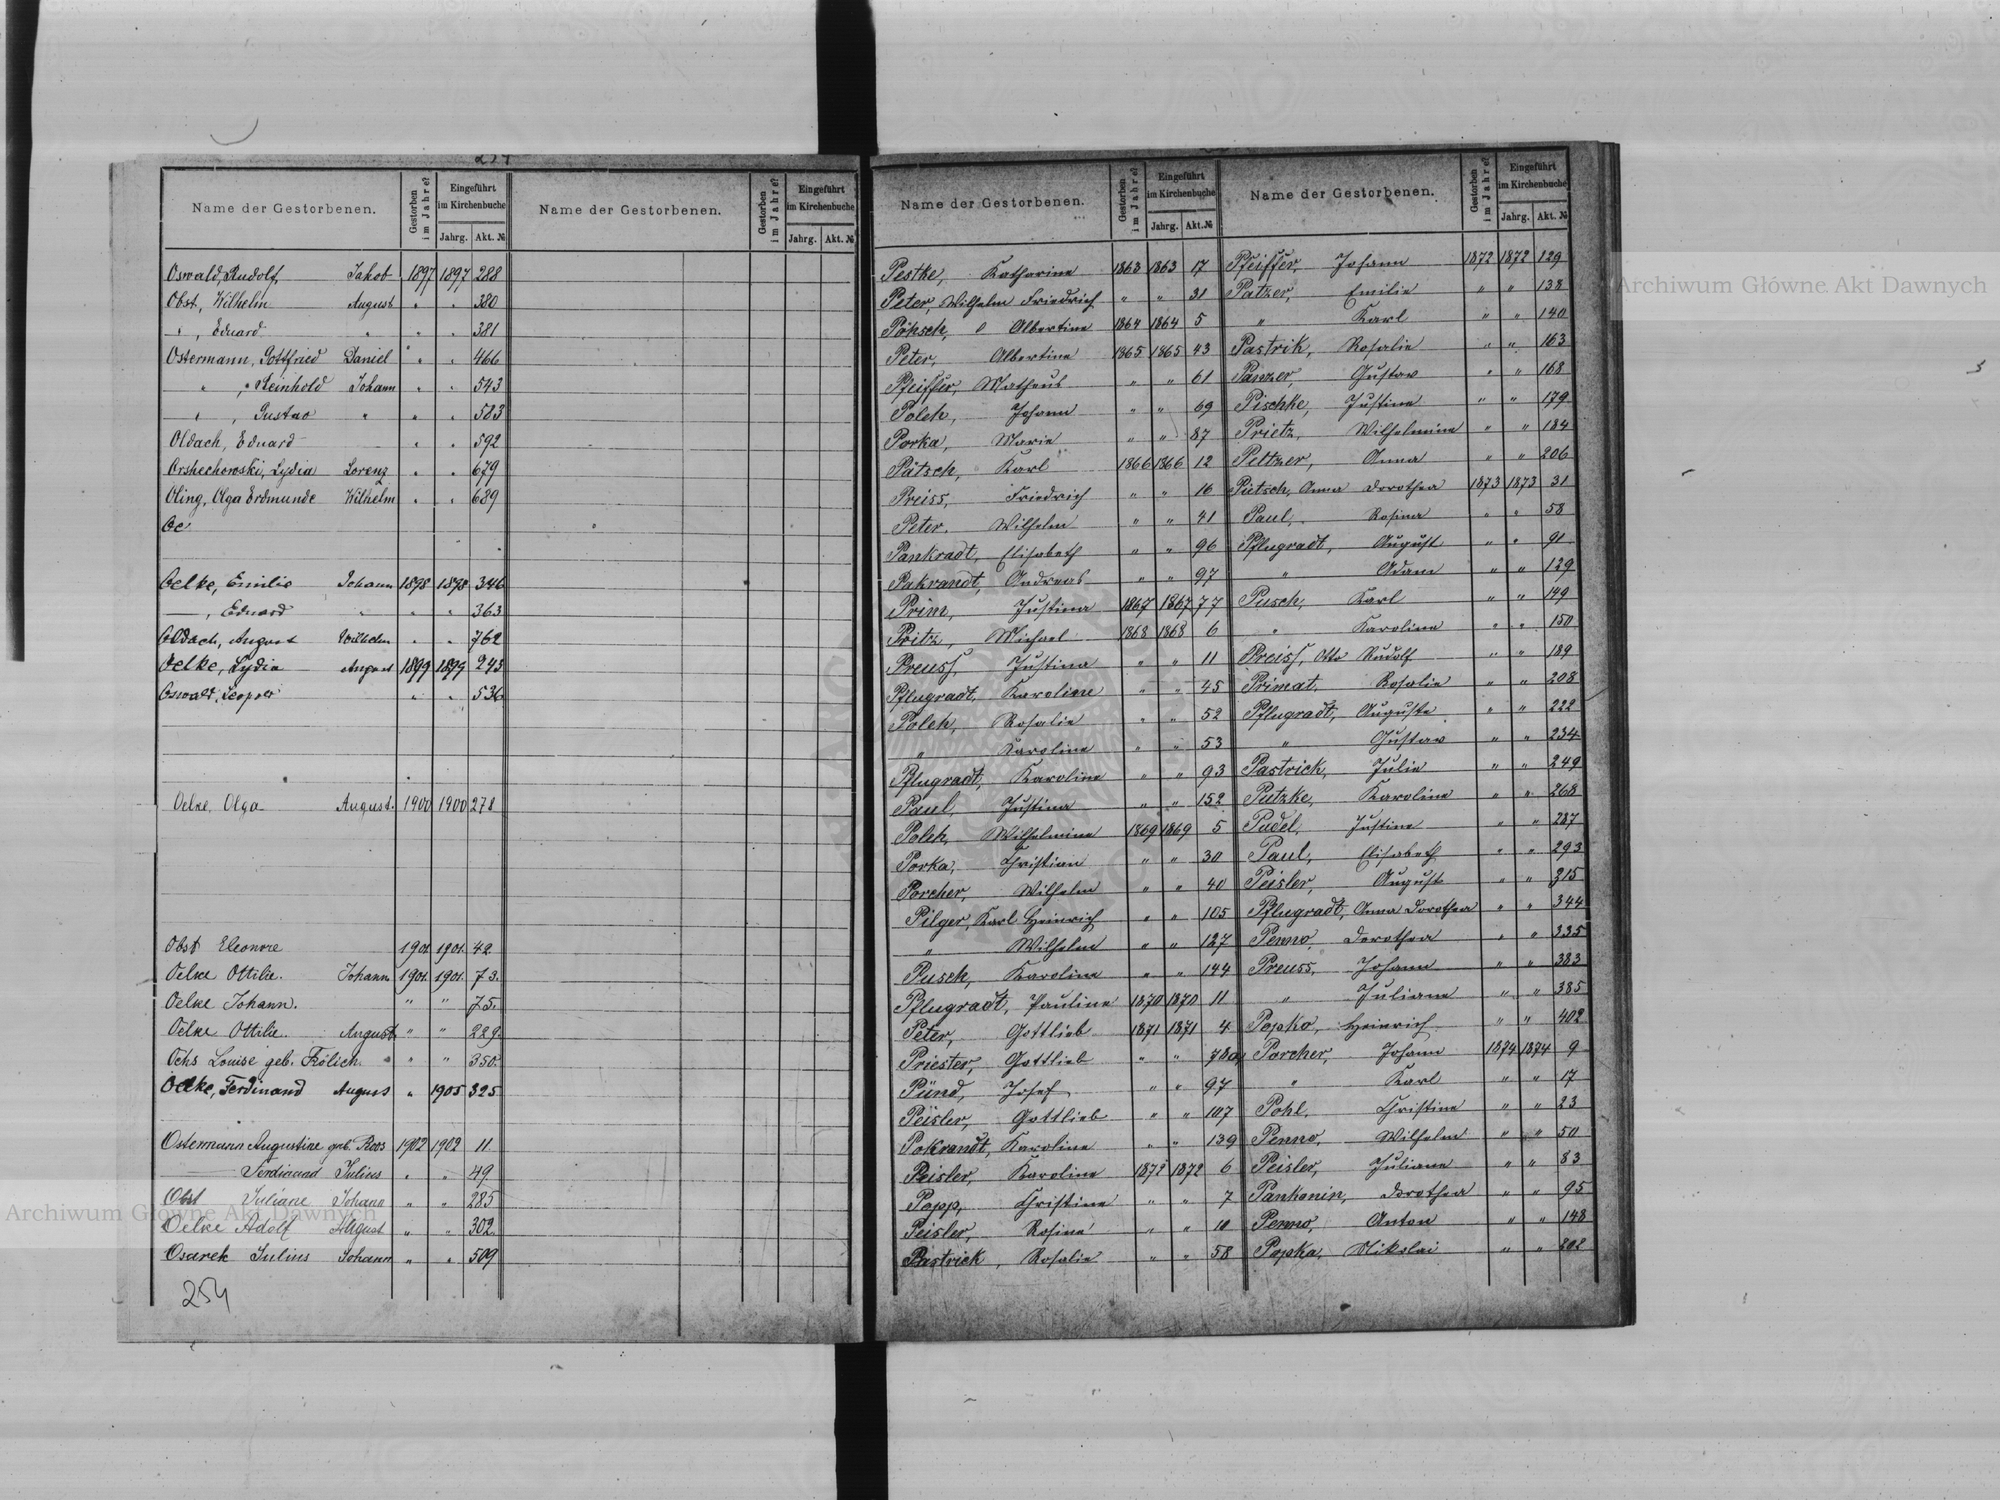 254
Name der Gestorbenen. Gestorben im Jahre? Eingeführt im Kirchenbuche Jahrg. Akt. №
Name der Gestorbenen. Gestorben im Jahre? Eingeführt im Kirchenbuche Jahrg. Akt. №
Oswald, Rudolf, Jakob 1897 1897 288
Obst, Wilhelm August " " 380
" , Eduard " " " 381
Ostermann, Gottfried Daniel " " 466
" , Reinhold Johann " " 543
" , Gustav " " " 583
Oldach, Eduard " " 592
Orshechowski, Lydia Lorenz " " 679
Oling, Olga Erdmunde Wilhelm " " 689
Oe
Oelke, Emilie Johann 1898 1898 346
— , Eduard " " " 363
Oldach, August Wilhelm " " 762
Oelke, Lydia August 1899 1899 243
Oswald, Leopold " " 536
Oelke, Olga August. 1900 1900 278
Obst Eleonore 1901. 1901. 42.
Oelke Ottilie. Johann 1901. 1901. 73.
Oelke Johann. " " 75.
Oelke Ottilie. August " " 229.
Ochs Louise geb. Frölich. " " 350.
Oelke, Ferdinand August " 1905 325
Ostermann Augustine geb. Roos 1902 1902 11
— Ferdinand Julius " " 49
Obst Juliane Johann " " 285
Oelke Adolf August " " 302
Osarek Julius Johann " " 509
254
Name der Gestorbenen. Gestorben im Jahre? Eingeführt im Kirchenbuche Jahrg. Akt. №
Pestke, Katharine 1863 1863 17
Peter, Wilhelm Friedrich " " 31
Pöhsch, Albertine 1864 1864 5
Peter, Albertine 1865 1865 43
Pfeiffer, Matheus " " 61
Poleh, Johann " " 69
Porka, Marie " " 87
Pätsch, Karl 1866 1866 12
Preiss, Friedrich " " 16
Peter, Wilhelm " " 41
Pankradt, Elisabeth " " 96
Pakrandt, Andreas " " 97
Prim, Justina 1867 1867 77
Pritz, Michael 1868 1868 6
Preuss, Justina " " 11
Pflugradt, Karoline " " 45
Poleh, Rosalie " " 52
" Karoline " " 53
Pflugradt, Karoline " " 93
Paul, Justina " " 152
Poleh, Wilhelmine 1869 1869 5
Porka, Christian " " 30
Porcher, Wilhelm " " 40
Pilger, Karl Heinrich " " 105
" Wilhelm " " 127
Pusch, Karoline " " 144
Pflugradt, Pauline 1870 1870 11
Peter, Gottlieb 1871 1871 4
Priester, Gottlieb " " 78a
Pünd, Josef " " 97
Peisler, Gottlieb " " 107
Pokrandt, Karoline " " 139
Peisler, Karoline 1872 1872 6
Popp, Christine " " 7
Peisler, Rosine " " 10
Pastrick, Rosalie " " 58
Name der Gestorbenen. Gestorben im Jahre? Eingeführt im Kirchenbuche Jahrg. Akt. №
Pfeiffer, Johann 1872 1872 129
Patzer, Emilie " " 138
" Karl " " 140
Pastrik, Rosalie " " 163
Panzer, Gustav " " 168
Pischke, Justine " " 179
Prietz, Wilhelmine " " 184
Peltzer, Anna " " 206
Pütsch, Anna Dorothea 1873 1873 31
Paul, Rosina " " 58
Pflugradt, August " " 91
" Adam " " 129
Pusch, Karl " " 149
" Karoline " " 150
Preiss, Otto Rudolf " " 189
Primat, Rosalie " " 208
Pflugradt, Auguste " " 222
" Gustav " " 234
Pastrick, Julie " " 249
Putzke, Karoline " " 268
Pudel, Justine " " 287
Paul, Elisabeth " " 293
Peisler, August " " 315
Pflugradt, Anna Dorothea " " 344
Penno, Dorothea " " 335
Preuss, Johann " " 383
" Juliane " " 385
Popko, Heinrich " " 402
Porcher, Johann 1874 1874 9
" Karl " " 17
Pohl, Christine " " 23
Penno, Wilhelm " " 50
Peisler, Juliane " " 83
Pankonin, Dorothea " " 95
Penno Anton " " 148
Popka, Nikolai " " 202
Archiwum Główne Akt Dawnych
Archiwum Główne Akt Dawnych